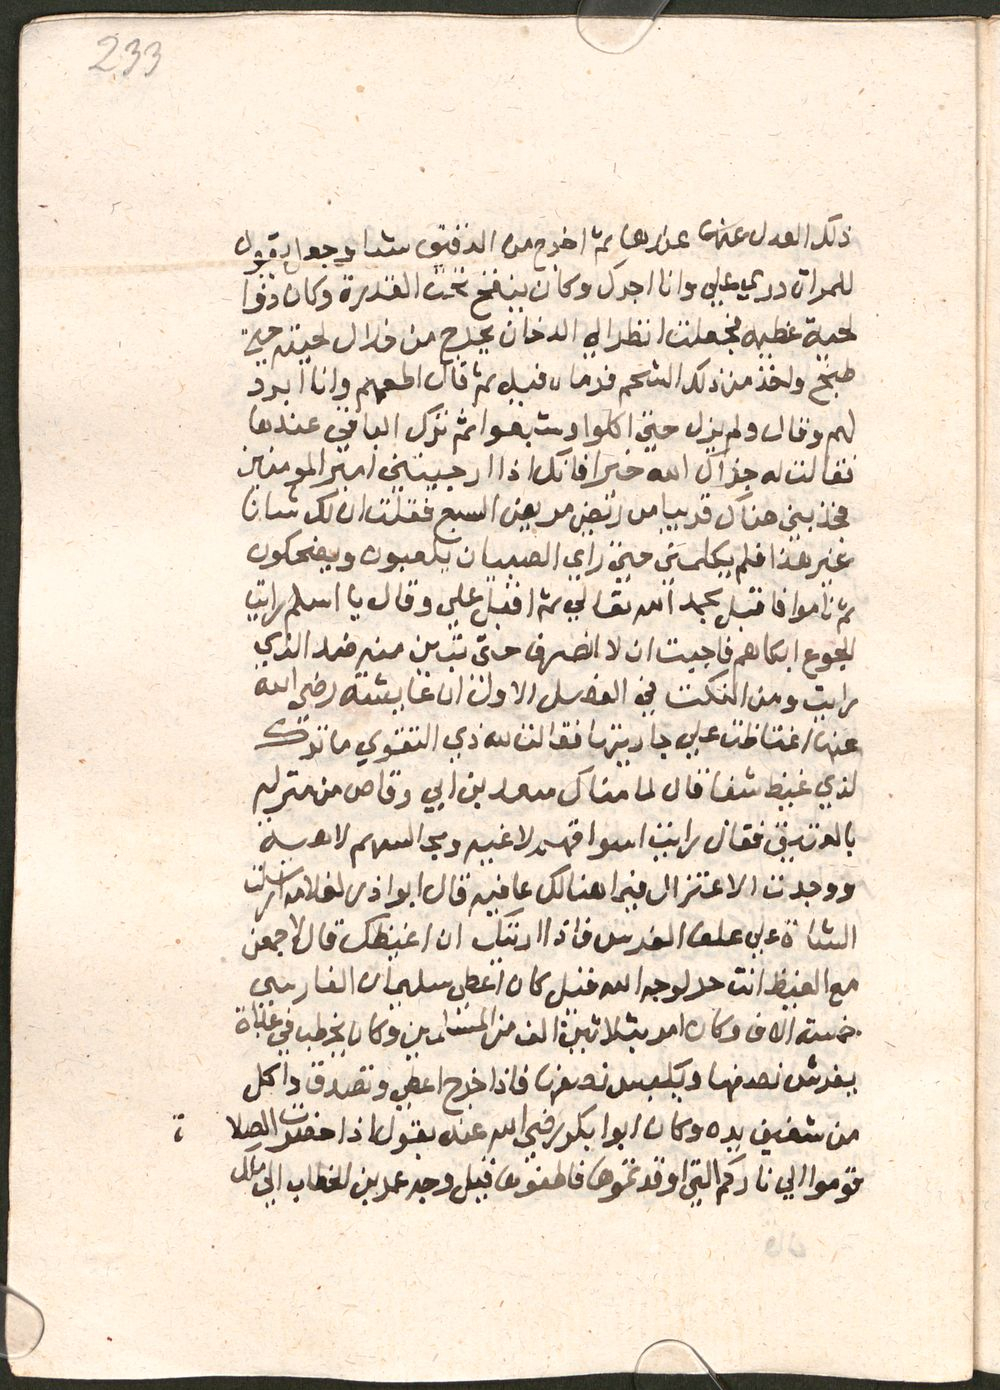 233
ذلك العدل عنها عندها ثم اخرج من الدقيق شيئا وجعل يقول
للمراة ذري علي وانا احرك وكان ينفخ تحت القدرة وكان ذوا
لحية عظيمه فجعلت انظر الي الدخان يخرج من خلال لحيته حتي
طبخ واخذ من ذلك الشحم فرماه فيه ثم قال اطعمهم وانا ابرد
لهم وقال ولم يزل حتي اكلوا وشبعوا ثم ترك الباقي عندها
فقالت له جزاك الله خيرا فانك اذا جيتي امير المومنين
تجديني هناك قريبا من ربض مربض السبع فقلت ان لك شانا
غير هذا فلم يكلمني حتي راي الصبيان يلعبون ويضحكون
ثم ناموا فاقبل يحمد الله تعالي ثم اقبل علي وقال يا اسلم رايت
الجوع ابكاهم فاحببت ان لا انصرف حتي يتبين منهم ضد الذي
رايت ومن النكت في الفصل الاول ان عايشة رضي الله
عنها اغتاظت علي جاريتها فقالت لله ذي التقوي ما تركت
لذي غيظ شفا قال لما سال سعد بن ابي وقاص من منزله
بالعقيق فقال رايت اسواقهم لاغيه ومجالسهم لاهية
ووجدت الاعتزال فيما هنالك عافيه قال ابوا ذر لغلامه ارسلت
الشاة علي علف الفرس قال اردت ان اغيظك قال لاجمعن
مع الغيظ انت حر لوجه الله قيل كان اعطي سلمان الفارسي
خمسة الاف وكان امير بثلاثين الف من المسلمين وكان يخطب في عباة
يفرش نصفها ويلبس نصفها فاذا خرج اعطي وتصدق واكل
من شفيف يده وكان ابوا بكر رضي الله عنه يقول اذا حضرت الصلا
ة
قوموا الي ناركم التي اوقدتموها فاطفئوها قيل وجه عمر بن الخطاب الي ملك